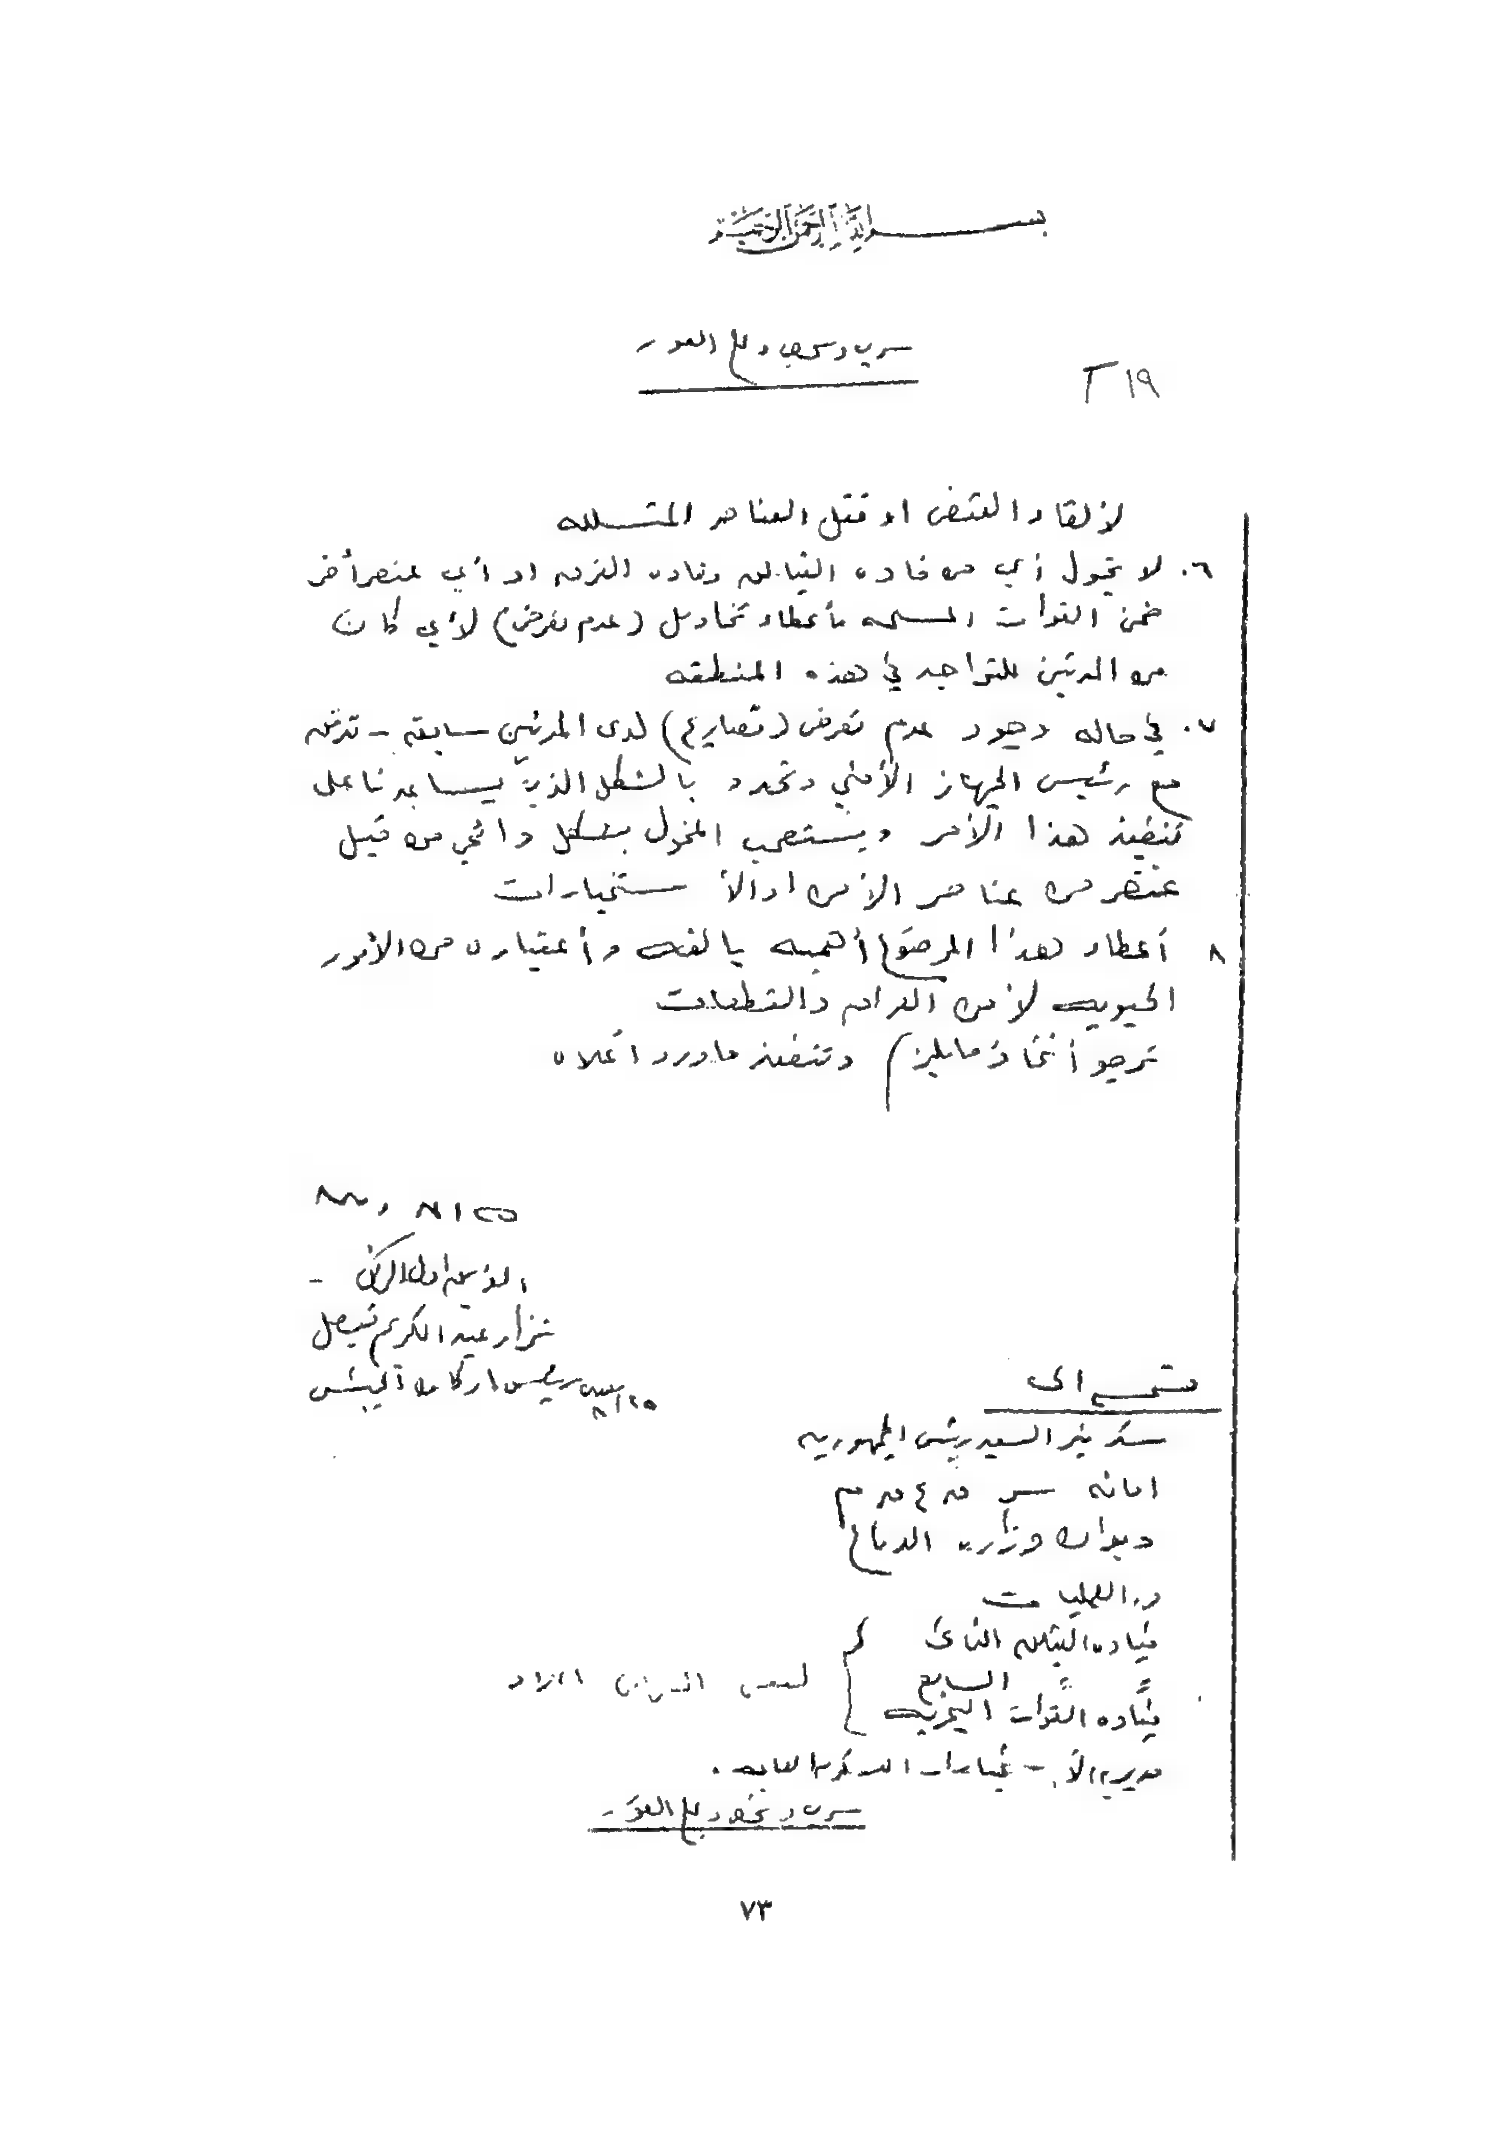 بسم الله الرحمن الرحيم
سري وشخصي وعلى الفور
٢١٩
لألقاء القبض او قتل العناصر المتسلله
٦. لا يخول أي من قاده الفيالق وقاده الفرق او أي عنصر أخر
ضمن القوات المسلحه بأعطاء تخاويل (عدم تعرض) لأي كان
من المدنين للتواجد في هذه المنطقه
٧. في حاله وجود عدم تعرض (تصاريح) لدى المدنين سابقه - تدقق
مع رئيس الجهاز الأمني وتحدد بالشكل الذي يساعدنا على
تنفيذ هذا الأمر ويستصحب المخول بشكل دائمي من قبل
عنصر من عناصر الأمن او الأستخبارات
٨ أعطاء هذا الموضوع أهميه بالغه وأعتباره من الأمور
الحيويه لأمن الفرق والقطعات
نرجو أتخاذ مايلزم وتنفيذ ماورد اعلاه
الفريق اول الركن
نزار عبد الكريم فيصل
رئيس اركان الجيش
٨/٢٥
نسخه الى
سكرتير السيد رئيس الجمهوريه
امانه سر ق ع ق م
ديوان وزاره الدفاع
د. العمليات
قياده الفيلق الثاني
= = السابع
قياده القوات البحريه
لنفس الغرض اعلاه
مديريه الأستخبارات العسكريه العامه .
سري وشخصي وعلى الفور
٧٣